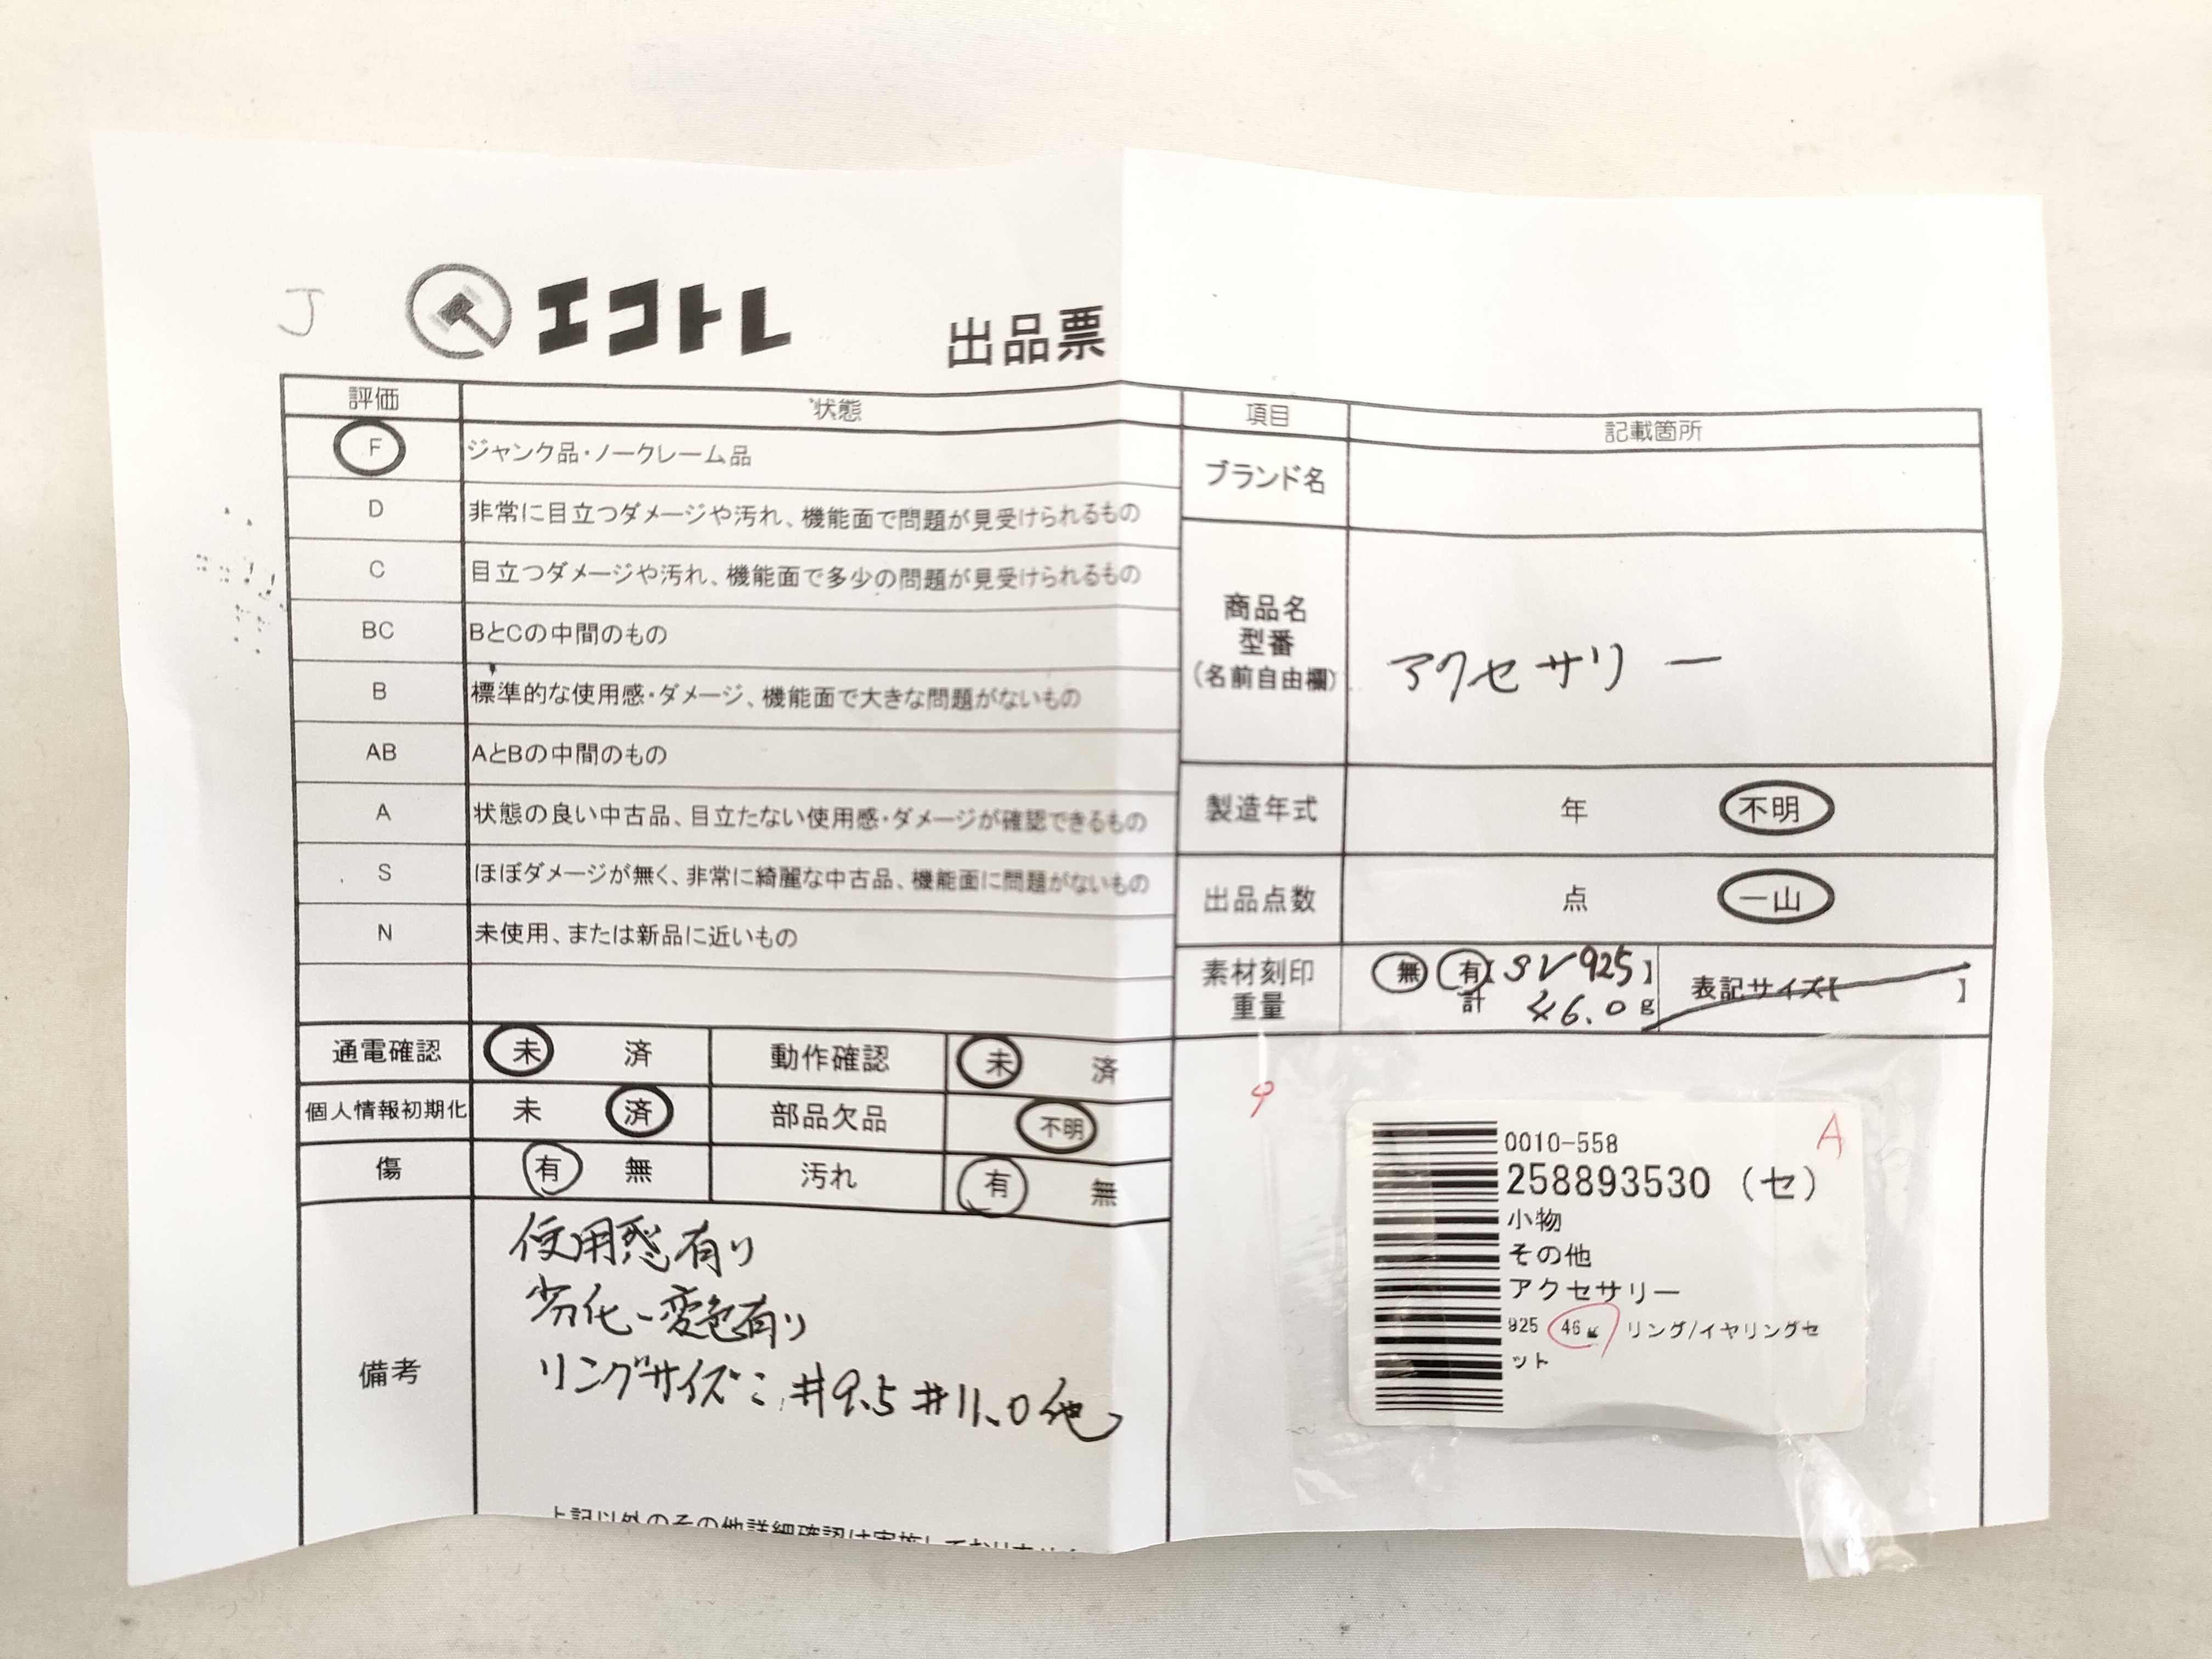 J
エコトレ 出品票
評価 状態
F ジャンク品・ノークレーム品
D 非常に目立つダメージや汚れ、機能面で問題が見受けられるもの
C 目立つダメージや汚れ、機能面で多少の問題が見受けられるもの
BC BとCの中間のもの
B 標準的な使用感・ダメージ、機能面で大きな問題がないもの
AB AとBの中間のもの
A 状態の良い中古品、目立たない使用感・ダメージが確認できるもの
S ほぼダメージが無く、非常に綺麗な中古品、機能面に問題がないもの
N 未使用、または新品に近いもの
通電確認 未 済 動作確認 未 済
個人情報初期化 未 済 部品欠品 不明
傷 有 無 汚れ 有 無
備考
使用感有り
劣化、変色有り
リングサイズ：#9.5 #11.0他
上記以外のその他詳細確認は実施しておりません
項目 記載箇所
ブランド名
商品名
型番
(名前自由欄)
アクセサリー
製造年式 年 不明
出品点数 点 一山
素材刻印
重量
無 有【SV925】
計 46.0g
表記サイズ【 】
9
A
0010-558
258893530 (セ)
小物
その他
アクセサリー
925 46g リング/イヤリングセ
ット